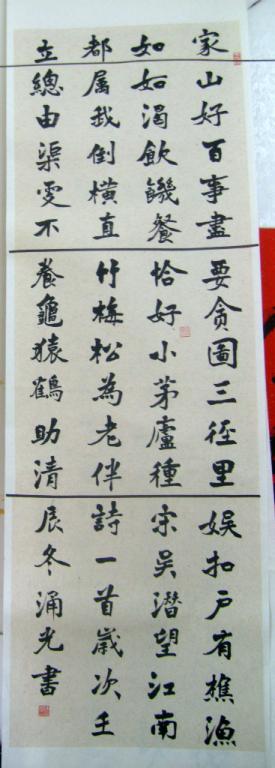 家山好百事盡
如如渴飲饑餐
都属我倒橫直
立總由渠更不
要貪圖三徑里
恰好小茅廬種
竹梅松為老伴
養龜猿鶴助清
娛扣戶有樵漁
宋吳潛望江南
詩一首歲次壬
辰冬涌光書